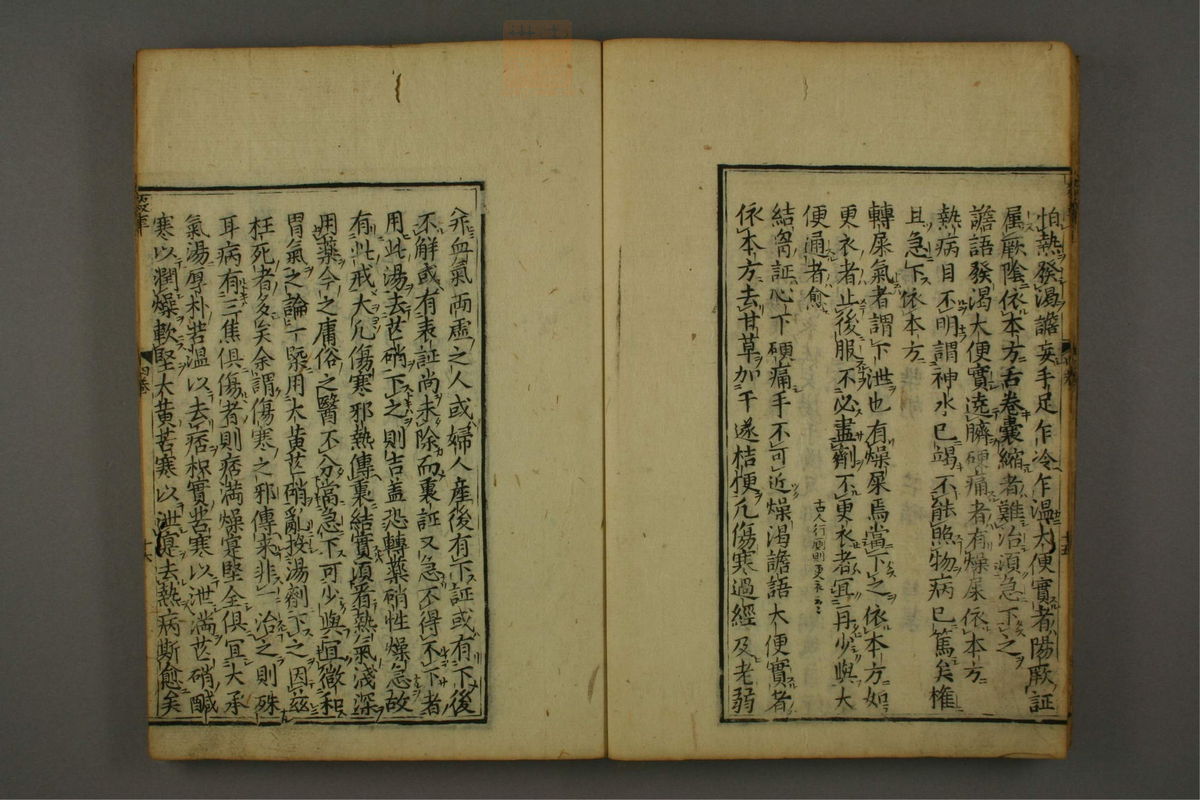 怕熱發渴譫妄手足乍冷乍溫大便實者陽厥証
屬厥陰依本方舌卷囊縮者難治須急下之
譫語發渴大便實遶臍硬痛者有燥屎依本方
熱病目不明謂神水已竭不能照物病已篤矣權
且急下依本方
轉屎氣者謂下泄也有燥屎焉當下之依本方如
更衣者止後服不必盡劑不更衣者宜再少與大
便通者愈古人行廁則更衣云云
結胷証心下硬痛手不可近燥渴譫語大便實者
依本方去甘草加干遂桔梗凢傷寒過經及老弱
并血氣兩虛之人或婦人産後有下証或有下後
不解或有表証尚未除而裏証又急不得不下者
用此湯去芒硝下之則吉盖恐轉藥硝性燥急故
有此戒大凢傷寒邪熱傳裏結實須看熱氣淺深
用藥今之庸俗之醫不分當急下可少與宜微和
胃氣之論一槩用大黃芒硝亂投湯劑下之因兹
枉死者多矣余謂傷寒之邪傳来非一治之則殊
耳病有三焦俱傷者則痞満燥寔堅全俱宜大承
氣湯厚朴苦温以去痞枳實苦寒以泄満芒硝鹹
寒以潤燥軟堅大黃苦寒以泄寔去熱病斯愈矣
四卷